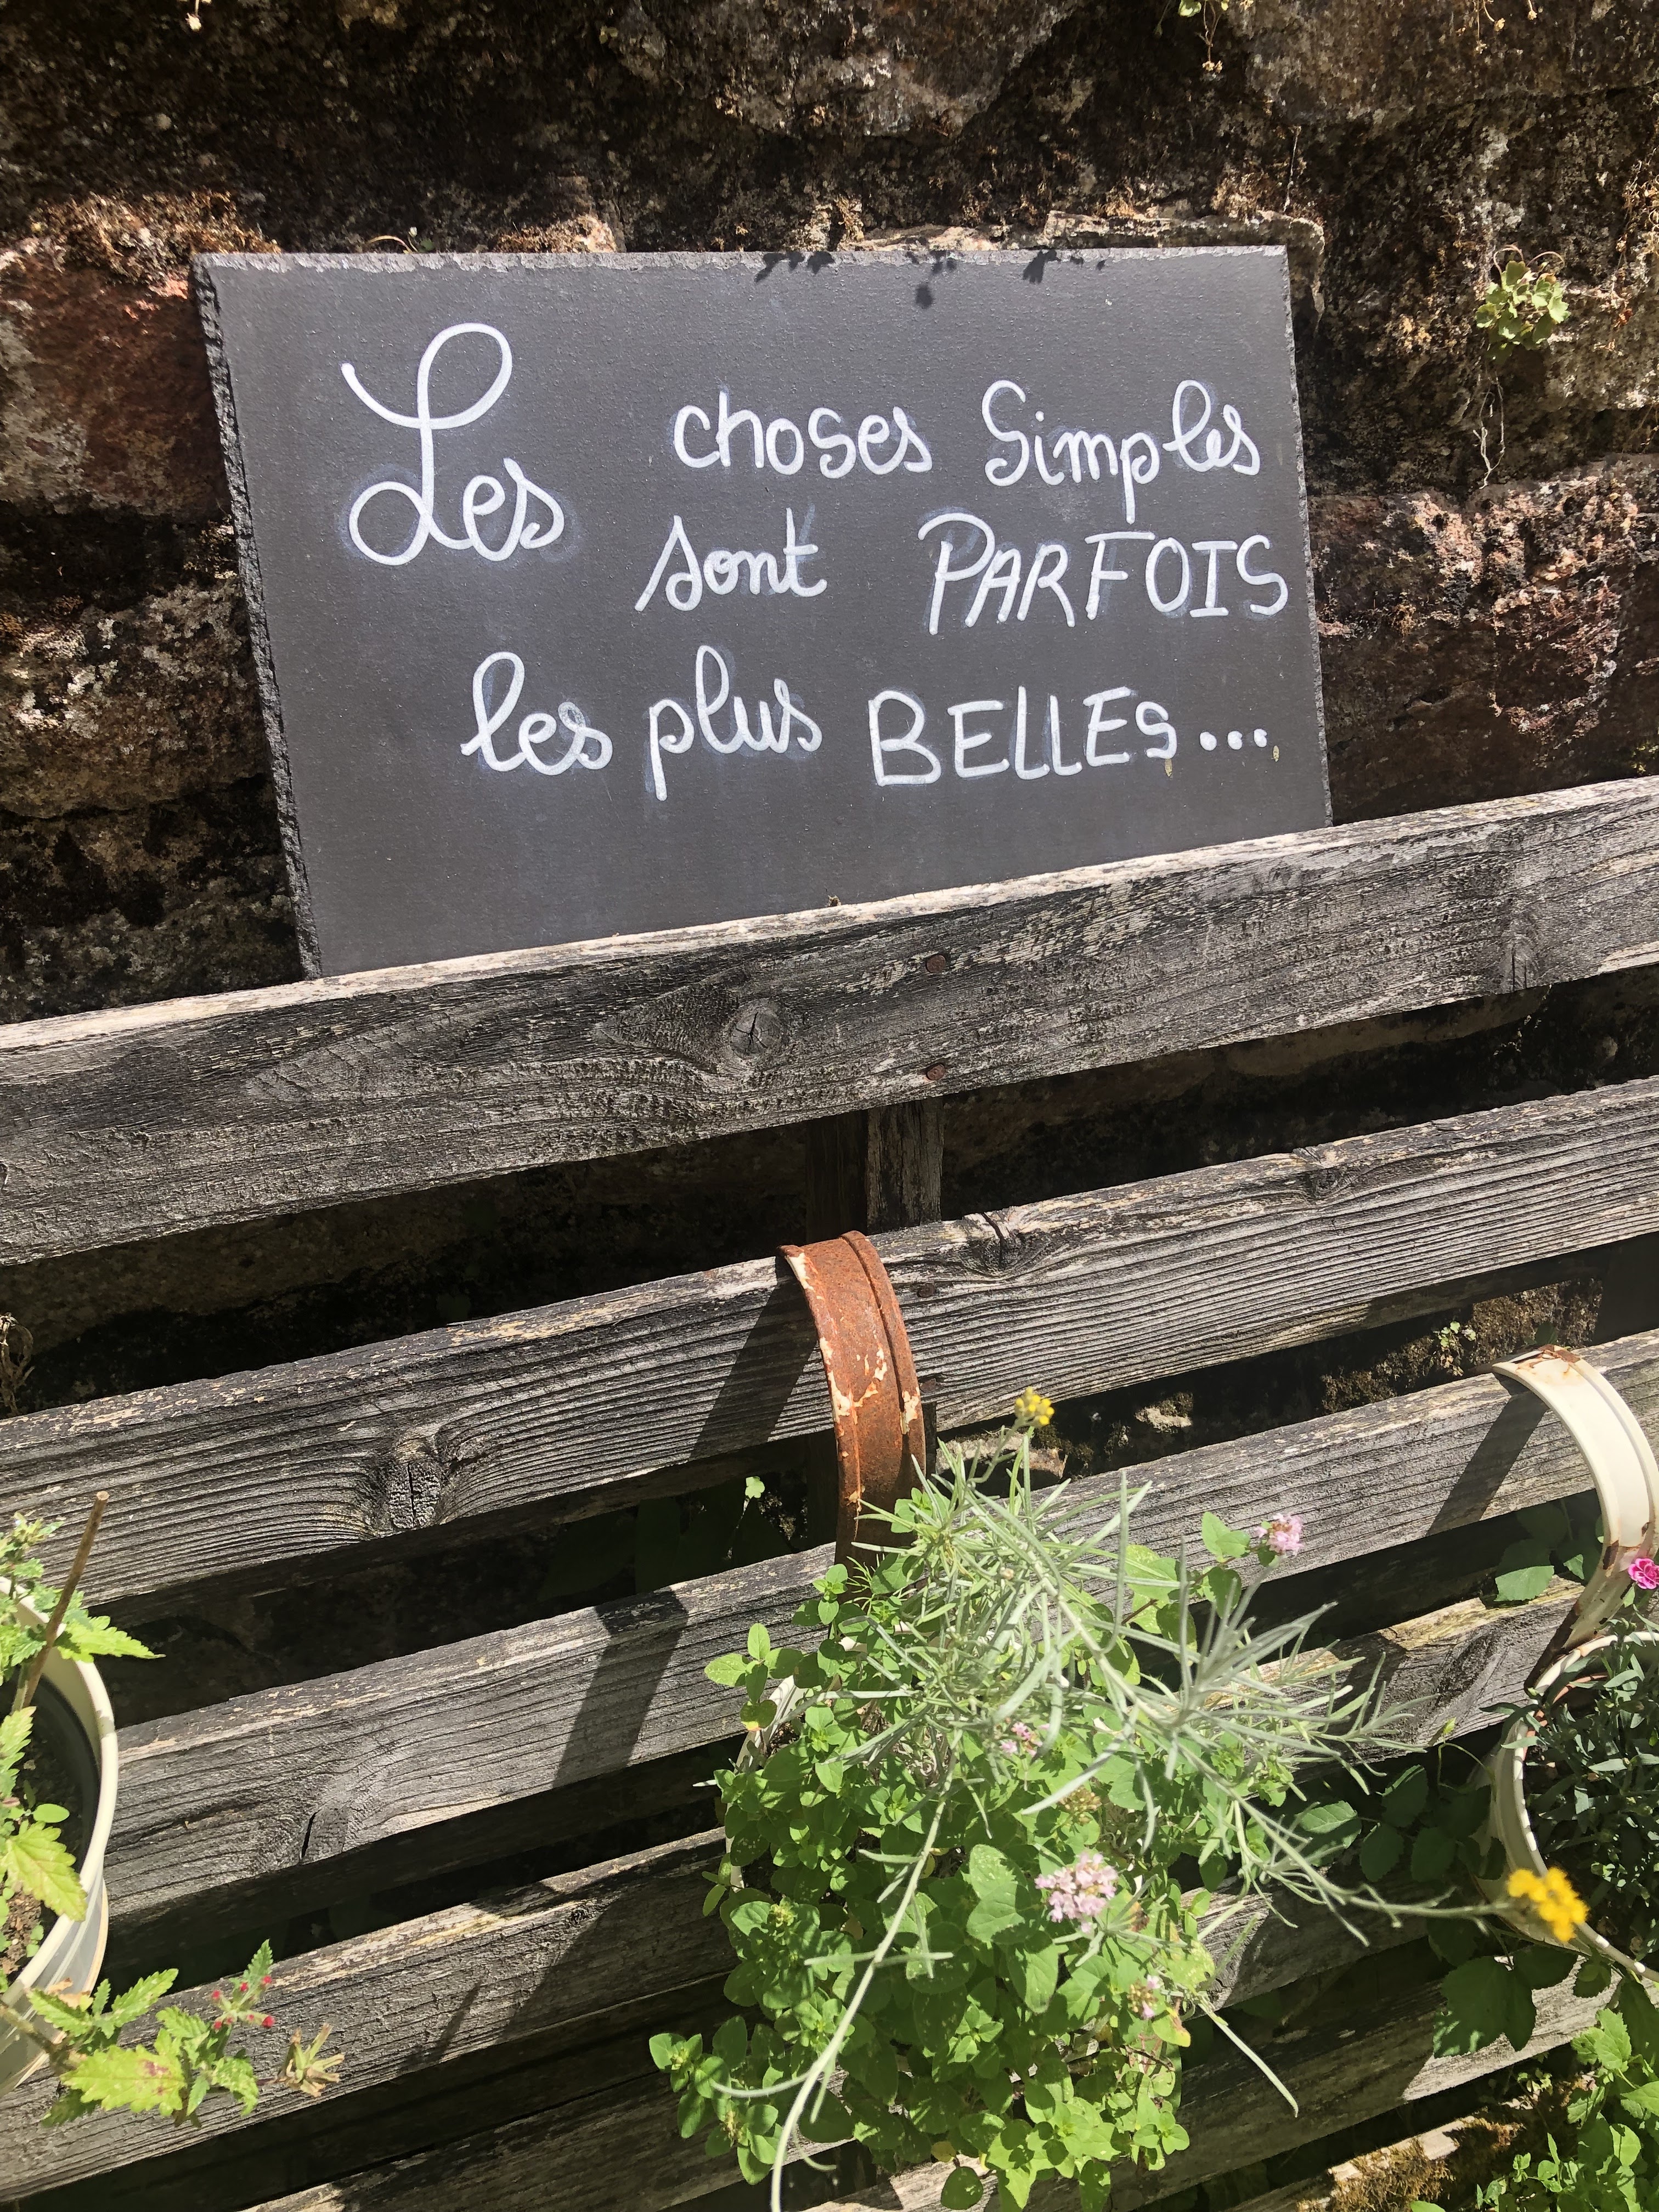 Les choses Simples
sont PARFOIS
les plus BELLES...